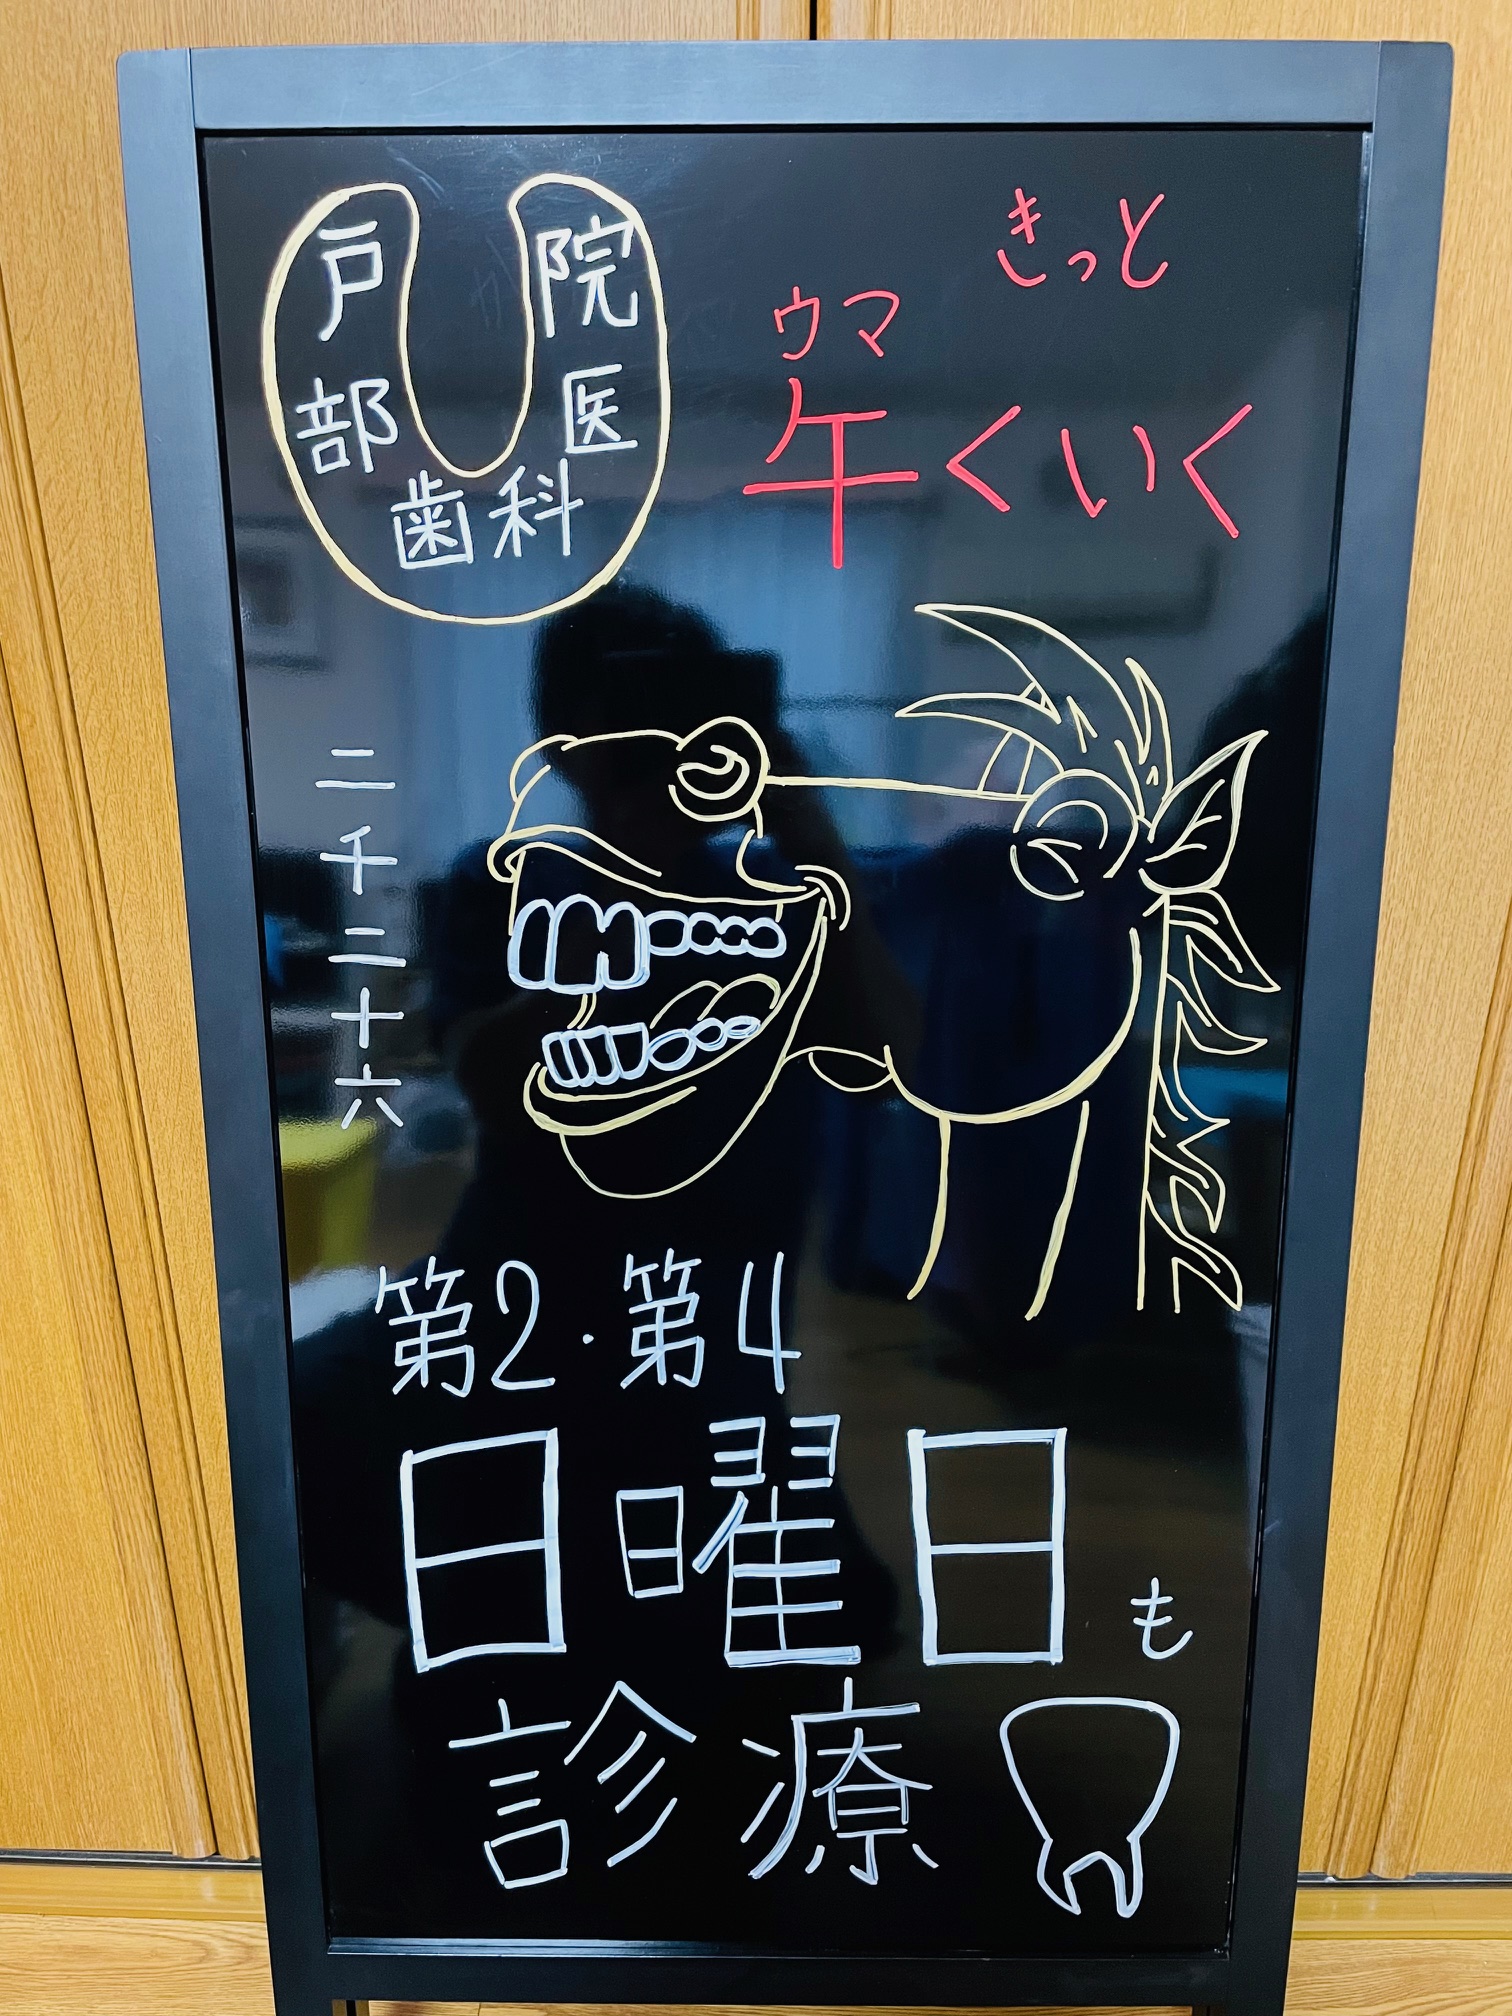 戸部歯科医院
きっと
ウマ
午くいく
二千二十六
第2・第4
日曜日も
診療